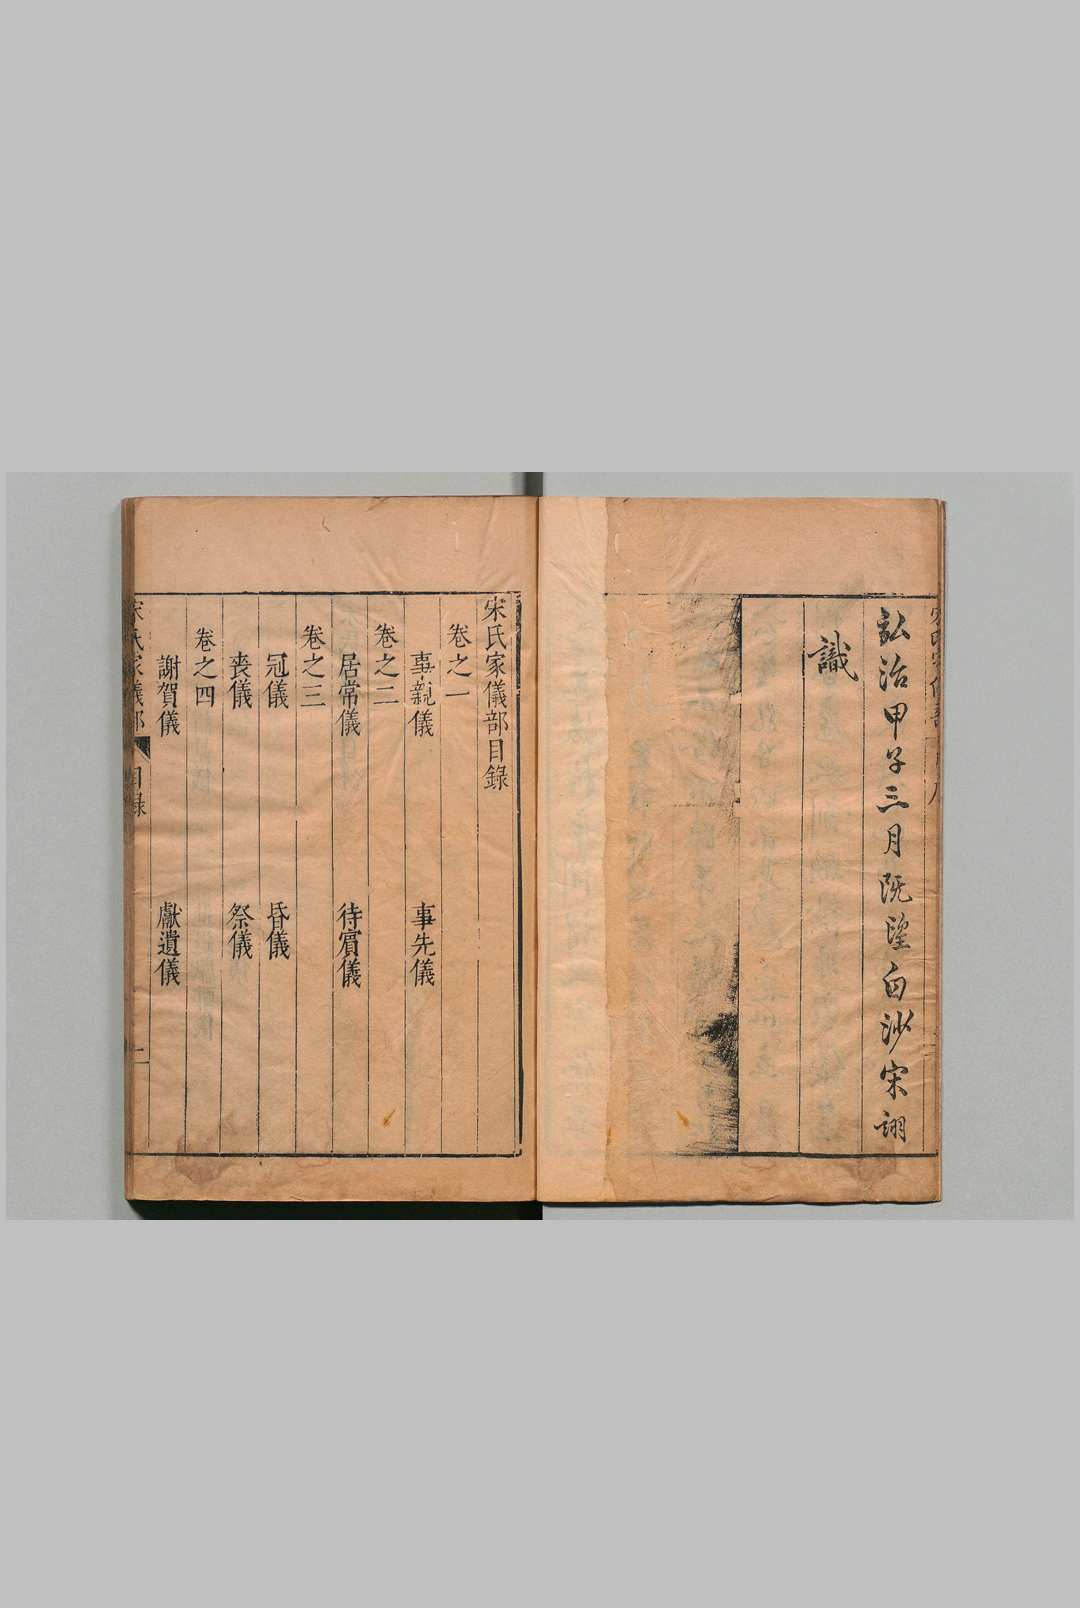 弘治甲子三月既望白沙宋詡
識
宋氏家儀部目錄
卷之一
事親儀 事先儀
卷之二
居常儀 待賓儀
卷之三
冠儀 昏儀
喪儀 祭儀
卷之四
謝賀儀 獻遺儀
宋氏家儀部 目錄 一